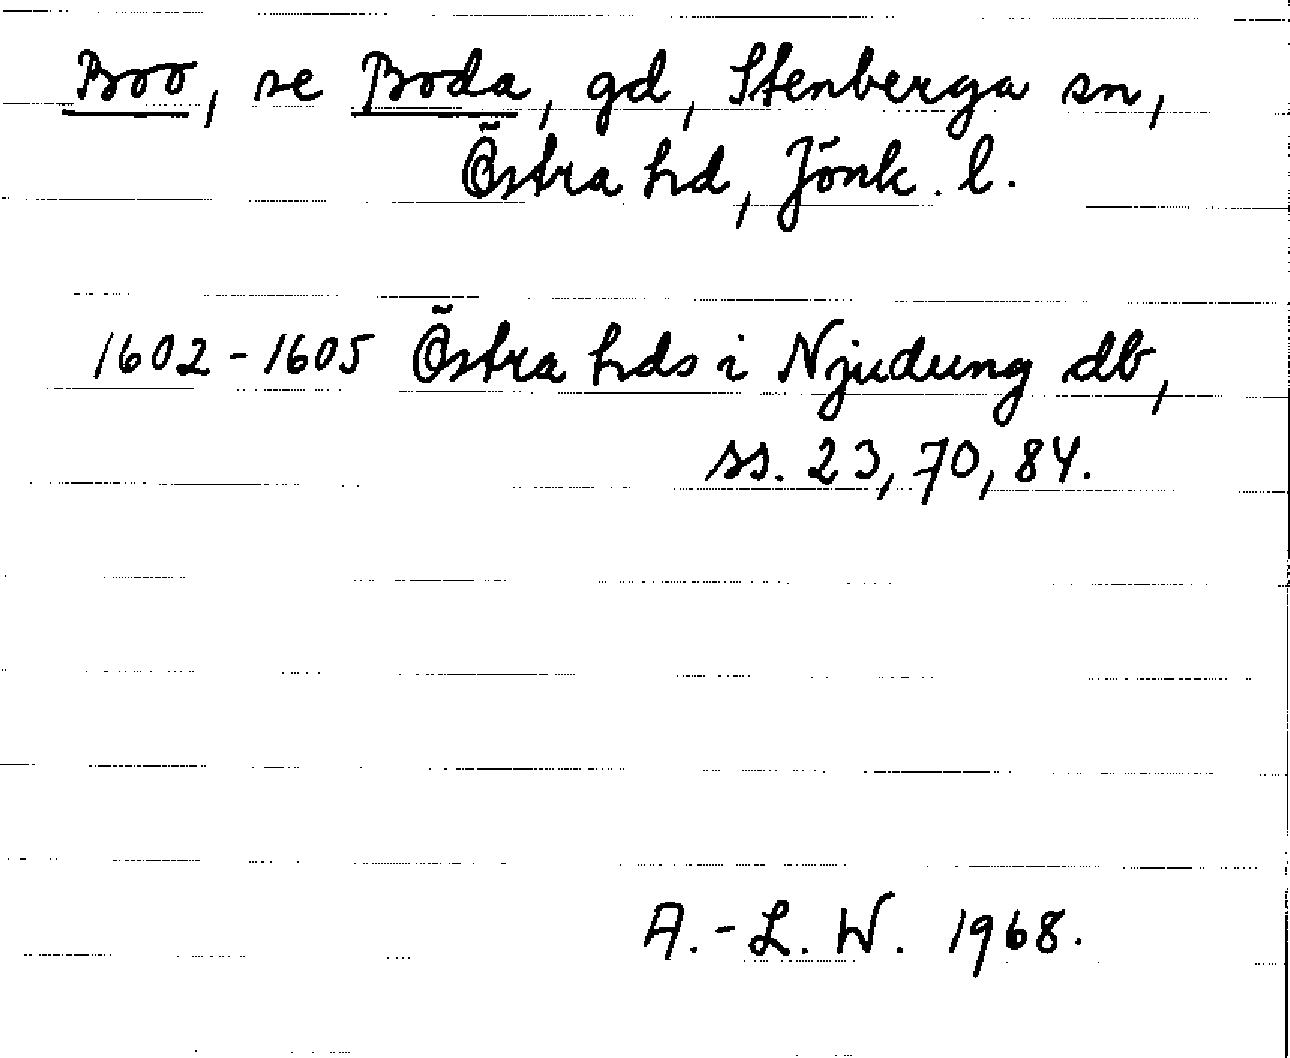 Boo, se Boda, gd, Stenberga sn,
Östra hd, Jönk. l.
1602-1605 Östra hds i Njudung db,
ss. 23, 70, 84.
A.-L. W. 1968.